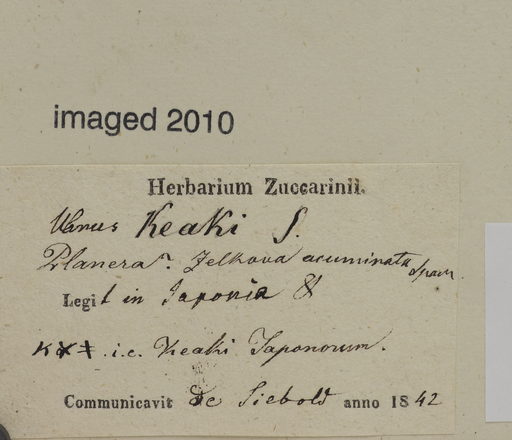 imaged 2010
Herbarium Zuccarinii.
Ulmus Keaki S.
Planera? Zelkova acuminata Spach.
Legit in Japonia &
i.e. Keaki Japonorum.
Communicavit de Siebold anno 1842